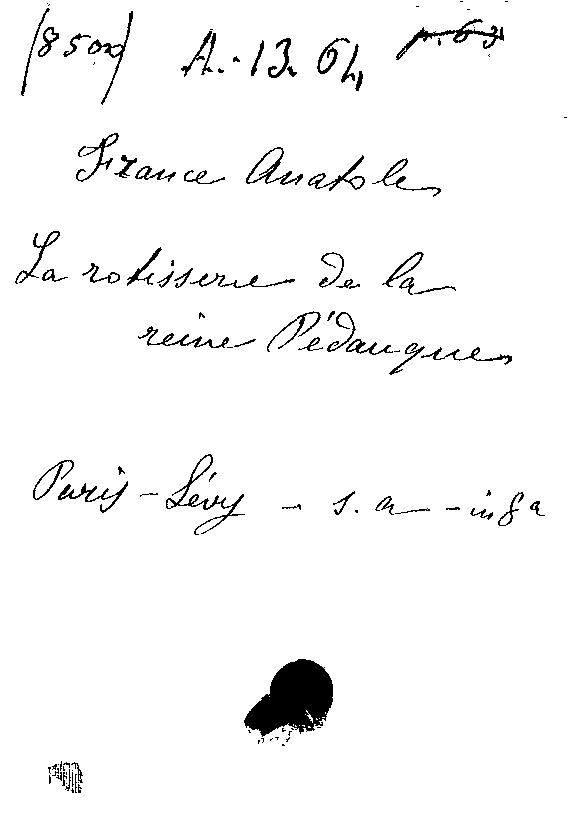 (8500) A.-13. 64, p. 63
France Anatole
La rotisserie de la
reine Pédauque
Paris - Lévy - s. a - in 8ª